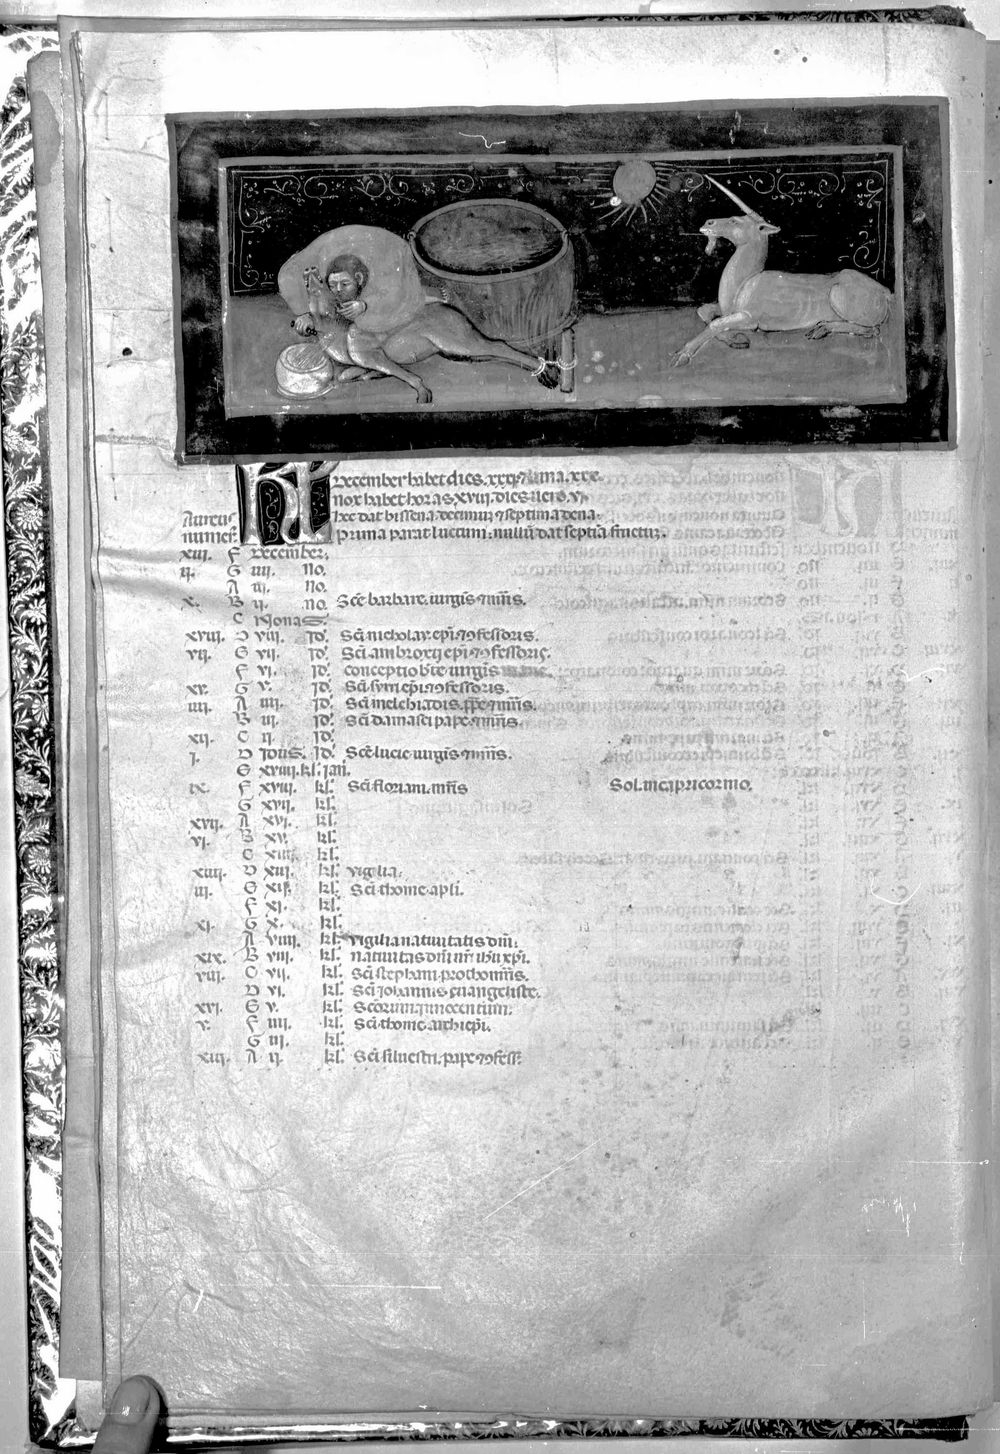 KL December habet dies .xxxj. luna .xxx.
nox habet horas .xviij. dies uero .vj.
Aureus hec dat bissena. decimus ⁊ septima dena.
numer. prima parat luctum. nullū dat septīa fructū.
xiii. F December.
ij. G iiij. no.
A iij. no.
x. B ij. no. Scē barbare uirgīs ⁊ mr̄is.
C Nonas.
xviii. D viij. Id. Scī nicholay. epī ⁊ ↄfessoris.
vij. E vij. Id. Scī ambroxij epī ⁊ ↄfessoris.
F vj. Id. conceptio bt̄e uirgīs
xv. G v. Id. Scī syri epī ⁊ ↄfessoris.
iiij. A iiij. Id. Scī melchiadis. pp̄e ⁊ mr̄is.
B iij. Id. Scī damasci pape. ⁊ mr̄is.
xij. C ij. Id.
j. D Idus. Id. Scē lucie uirgīs ⁊ mr̄is.
E xviiij. kl. Jan.
ix. F xviij. kl. Scī floriani. mr̄is Sol. in capricorno.
G xvij. kl.
xvij. A xvj. kl.
vj. B xv. kl.
C xiiij. kl.
xiiij. D xiij. kl. vigilia.
iij. E xij. kl. Scī thome apl̄i.
F xj. kl.
xj. G x. kl.
A viiij. kl. vigilia natiuitatis dn̄i.
xix. B viij. kl. natiuitas dn̄i nr̄i ihū xp̄i.
viij. C vij. kl. Scī stephani. prothomr̄is.
D vj. kl. Scī iohannis euangeliste.
xvj. E v. kl. Scōrum innocentium.
v. F iiij. kl. Scī thome. archiepī.
G iij. kl.
xiij. A ij. kl. Scī siluestri. pape ⁊ ↄfess.